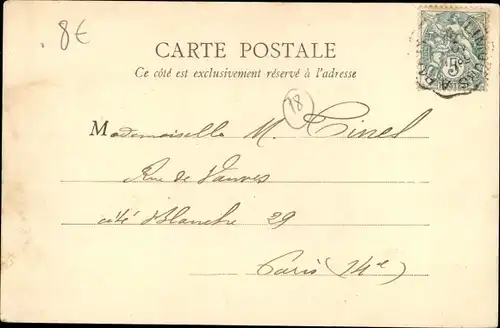 8€
CARTE POSTALE
Ce côté est exclusivement réservé à l'adresse
18
Mademoiselle M. Tinel
Rue de Vanves
cité Blanche 29
Paris (14e)
5c